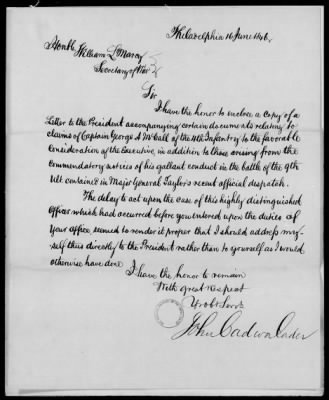 Philadelphia 16 June 1846.
Honble William L Marcy
Secretary of War
Sir
I have the honor to enclose a Copy of a
Letter to the President accompanying certain documents relating to
claims of Captain George A McCall of the 4th Infantry to the favorable
Consideration of the Executive, in addition to those arising from the
Commendatory notices of his gallant conduct in the battle of the 9th
Ult contained in Major General Taylor's recent official dispatch.
The delay to act upon the case of this highly distinguished
Officer which had occurred before you entered upon the duties of
Your office, seemed to render it proper that I should address my-
self thus directly to the President rather than to yourself as I would
otherwise have done
I have the honor to remain
With great respect
Yr obt Servt
John Cadwalader